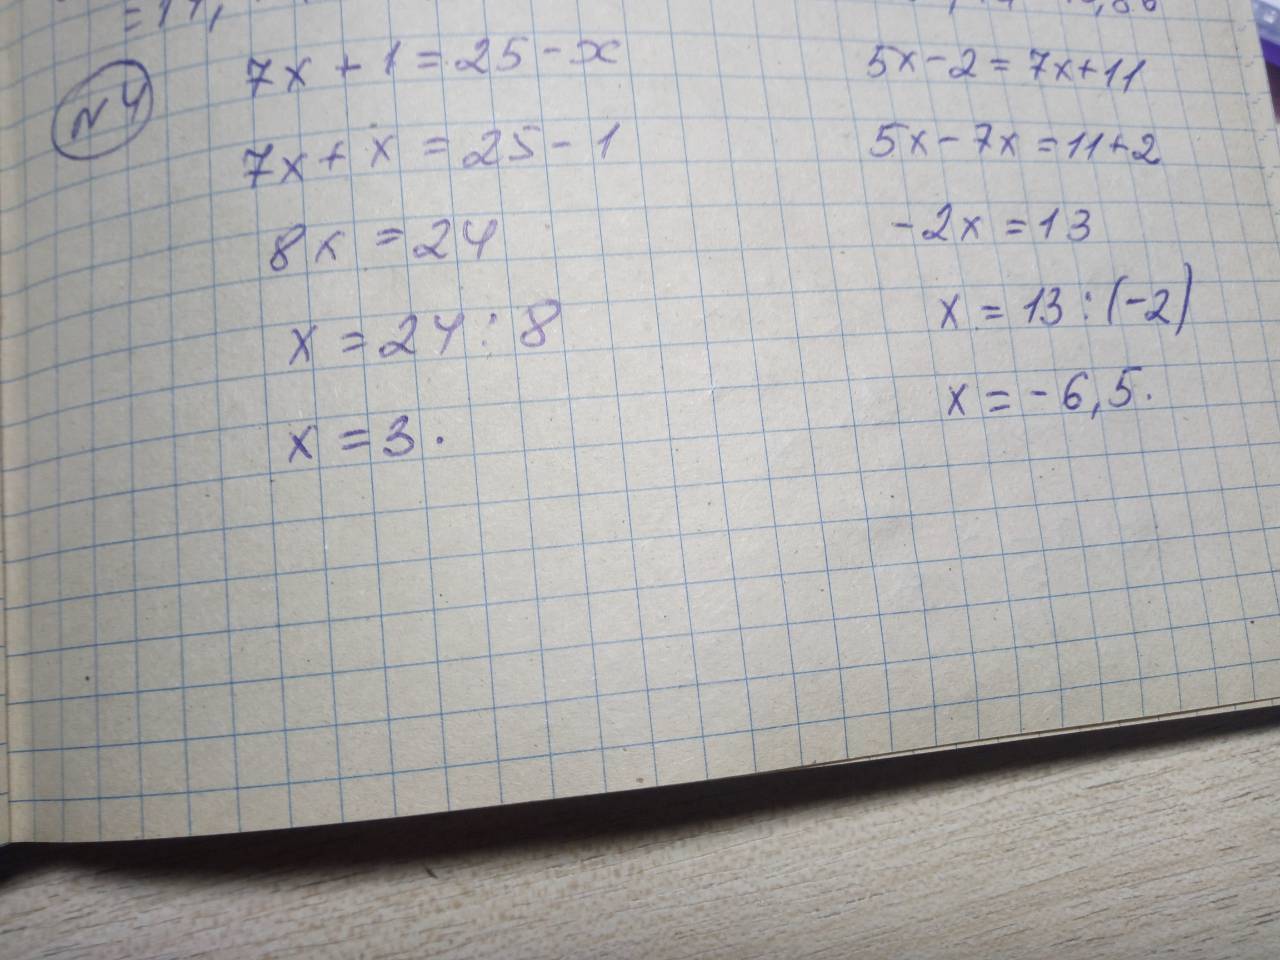 №4
7x + 1 = 25 - x
7x + x = 25 - 1
8x = 24
x = 24 : 8
x = 3.
5x - 2 = 7x + 11
5x - 7x = 11 + 2
-2x = 13
x = 13 : (-2)
x = -6,5.